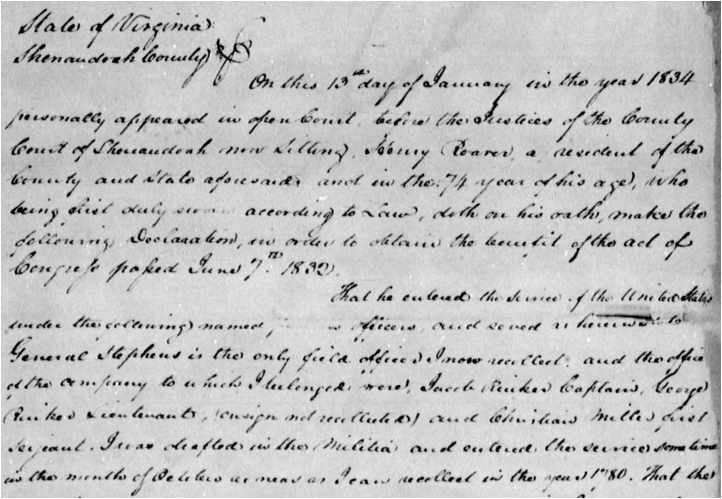 State of Virginia
Shenandoah County
On this 13th day of January in the year 1834
personally appeared in open Court, before the Justices of the County
Court of Shenandoah now Sitting, Henry Roarer, a resident of the
County and State aforesaid and in the 74 year of his age, who
being first duly sworn according to Law, doth on his oath, make the
following Declaration, in order to obtain the benefit of the act of
Congress passed June 7th 1832.
That he entered the service of the United States
under the following named, officers, and served as
General Stephens is the only field officer I now recollect. and the
of the company to which I belonged were, Jacob Rinker Captain, George
Rinker Lieutenant, (ensign not recollected) and Christian Miller first
Serjeant. I was drafted in the Militia and entered the service sometime
in the month of October as near as I can recollect in the year 1780. That the